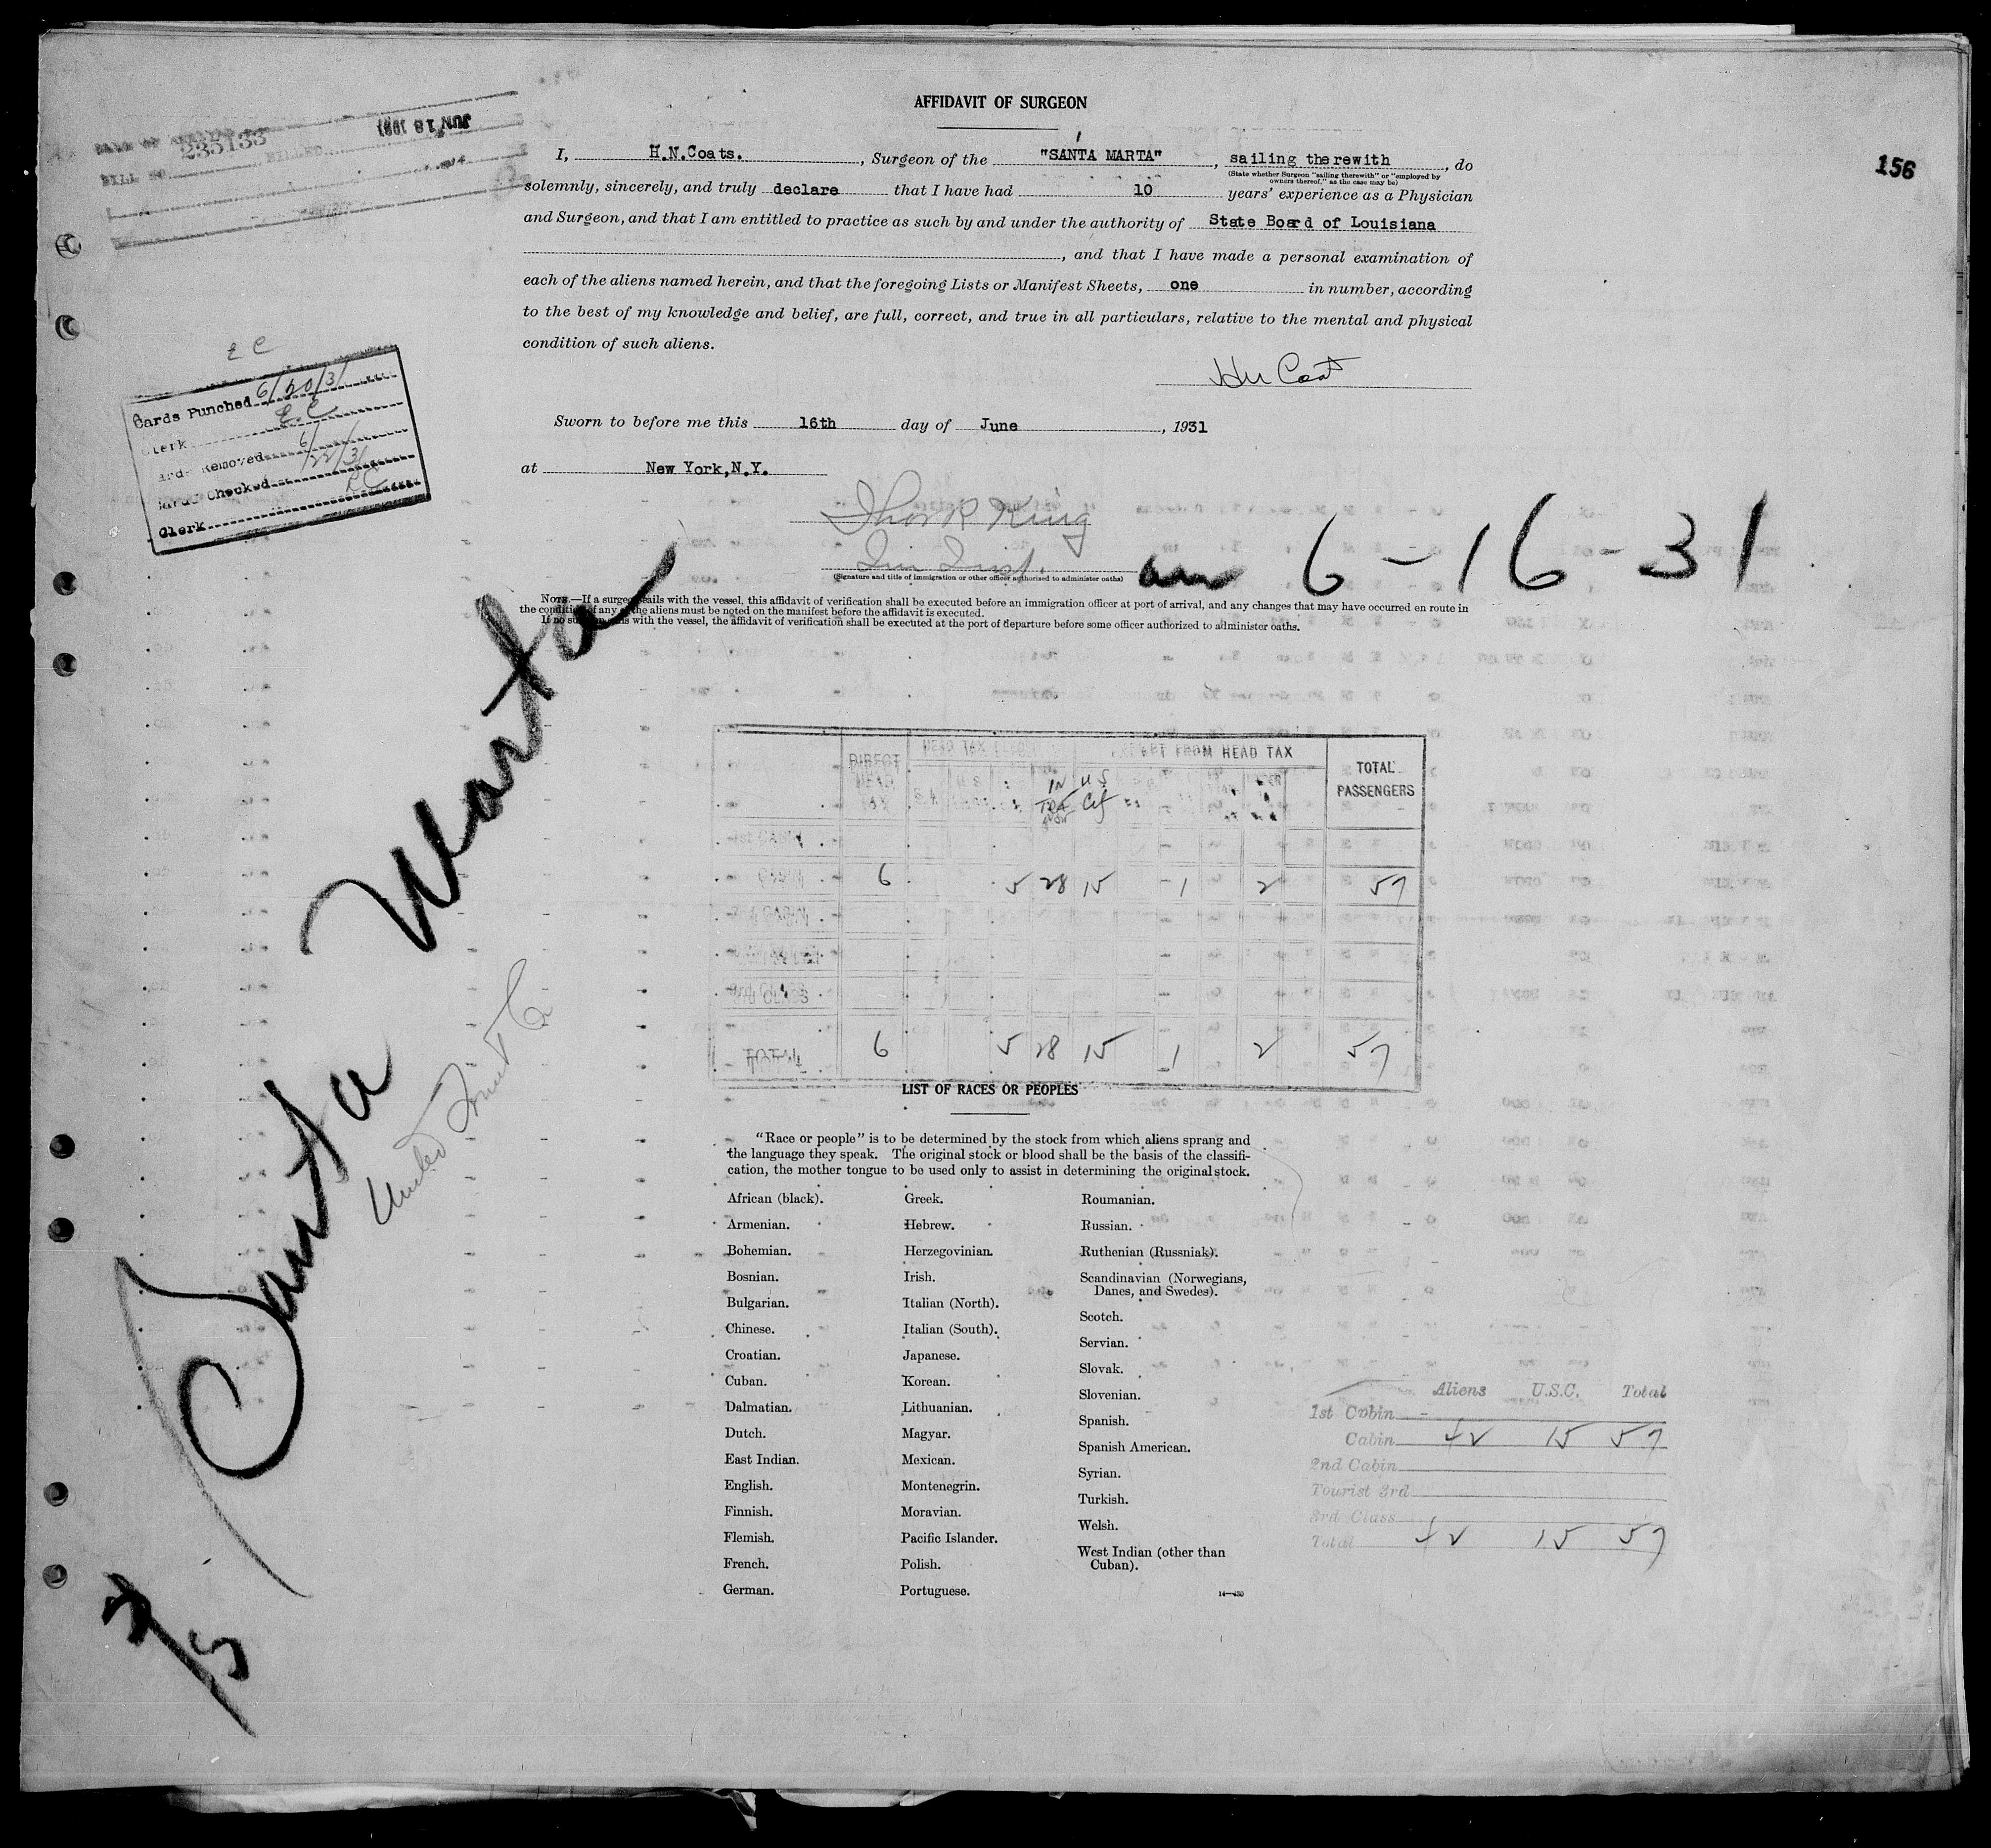 AFFIDAVIT OF SURGEON
I, H.N.Coats. , Surgeon of the "SANTA MARTA" , sailing therewith , do
(State whether Surgeon "sailing therewith" or "employed by owners thereof," as the case may be)
solemnly, sincerely, and truly declare that I have had 10 years' experience as a Physician
and Surgeon, and that I am entitled to practice as such by and under the authority of State Board of Louisiana
, and that I have made a personal examination of
each of the aliens named herein, and that the foregoing Lists or Manifest Sheets, one in number, according
to the best of my knowledge and belief, are full, correct, and true in all particulars, relative to the mental and physical
condition of such aliens.
156
235133
BILL NO.
BILLED
JUN 18 1931
Sworn to before me this 16th day of June , 1931
at New York,N.Y.
King
(Signature and title of immigration or other officer authorized to administer oaths)
6-16-31
Cards Punched 6/20/31
Clerk
Cards Removed
Cards Checked 6/22/31
Clerk
NOTE.—If a surgeon sails with the vessel, this affidavit of verification shall be executed before an immigration officer at port of arrival, and any changes that may have occurred en route in
the condition of any of the aliens must be noted on the manifest before the affidavit is executed.
If no surgeon sails with the vessel, the affidavit of verification shall be executed at the port of departure before some officer authorized to administer oaths.
Santa Marta
United Fruit Co
DIRECT HEAD TAX
HEAD TAX
EXEMPT FROM HEAD TAX
TOTAL PASSENGERS
IN
U S Cit
1st CABIN
CABIN 6 5 28 15 1 2 57
2nd CABIN
3rd CLASS
TOTAL 6 5 28 15 1 2 57
LIST OF RACES OR PEOPLES
"Race or people" is to be determined by the stock from which aliens sprang and
the language they speak. The original stock or blood shall be the basis of the classifi-
cation, the mother tongue to be used only to assist in determining the original stock.
African (black).
Armenian.
Bohemian.
Bosnian.
Bulgarian.
Chinese.
Croatian.
Cuban.
Dalmatian.
Dutch.
East Indian.
English.
Finnish.
Flemish.
French.
German.
Greek.
Hebrew.
Herzegovinian.
Irish.
Italian (North).
Italian (South).
Japanese.
Korean.
Lithuanian.
Magyar.
Mexican.
Montenegrin.
Moravian.
Pacific Islander.
Polish.
Portuguese.
Roumanian.
Russian.
Ruthenian (Russniak).
Scandinavian (Norwegians,
Danes, and Swedes).
Scotch.
Servian.
Slovak.
Slovenian.
Spanish.
Spanish American.
Syrian.
Turkish.
Welsh.
West Indian (other than
Cuban).
14—430
Aliens U.S.C. Total
1st Cabin
Cabin 42 15 57
2nd Cabin
Tourist 3rd
3rd Class
Total 42 15 57